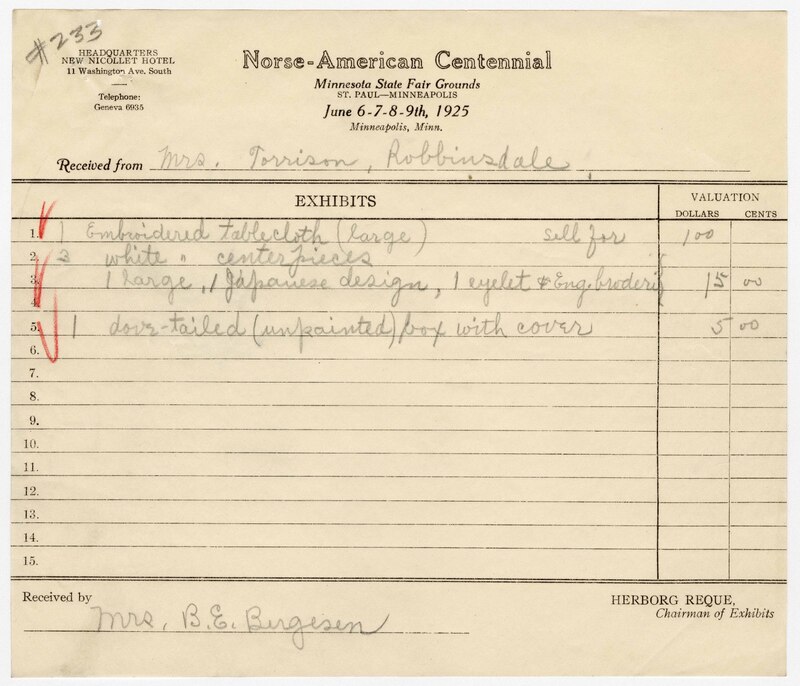 #233
HEADQUARTERS
NEW NICOLLET HOTEL
11 Washington Ave. South
Telephone:
Geneva 6935
Norse-American Centennial
Minnesota State Fair Grounds
ST. PAUL—MINNEAPOLIS
June 6-7-8-9th, 1925
Minneapolis, Minn.
Received from Mrs. Torrison, Robbinsdale
EXHIBITS VALUATION
DOLLARS CENTS
1. 1 Embroidered tablecloth (large) sell for 100
2. 3 white " centerpieces
3. 1 large, 1 Japanese design, 1 eyelet & Eng. broderi 15 00
4.
5. 1 dove-tailed (unpainted) box with cover 5 00
6.
7.
8.
9.
10.
11.
12.
13.
14.
15.
Received by Mrs. B.E. Bergesen
HERBORG REQUE,
Chairman of Exhibits